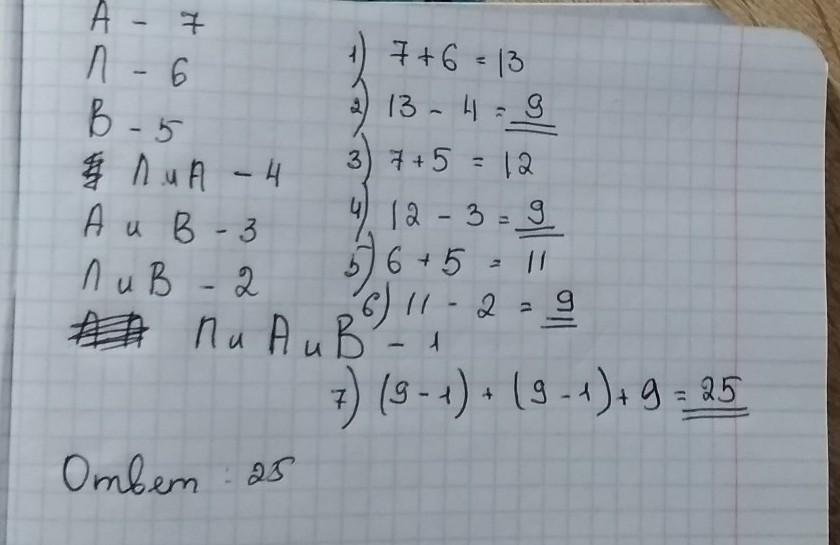 А - 7
Л - 6
В - 5
Л и А - 4
А и В - 3
Л и В - 2
Л и А и В - 1
1) 7 + 6 = 13
2) 13 - 4 = 9
3) 7 + 5 = 12
4) 12 - 3 = 9
5) 6 + 5 = 11
6) 11 - 2 = 9
7) (9 - 1) + (9 - 1) + 9 = 25
Ответ : 25